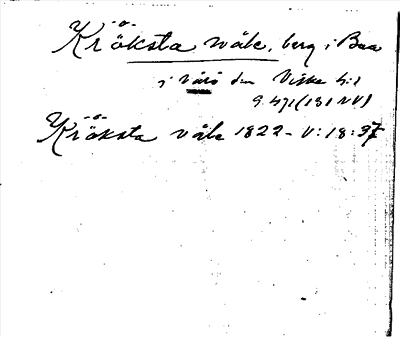 Kröksta wåle, berg i Baa
i Värö sn Viske hd
G. 471 (131 NV)
Kröksta våle 1822 - V: 18: 97